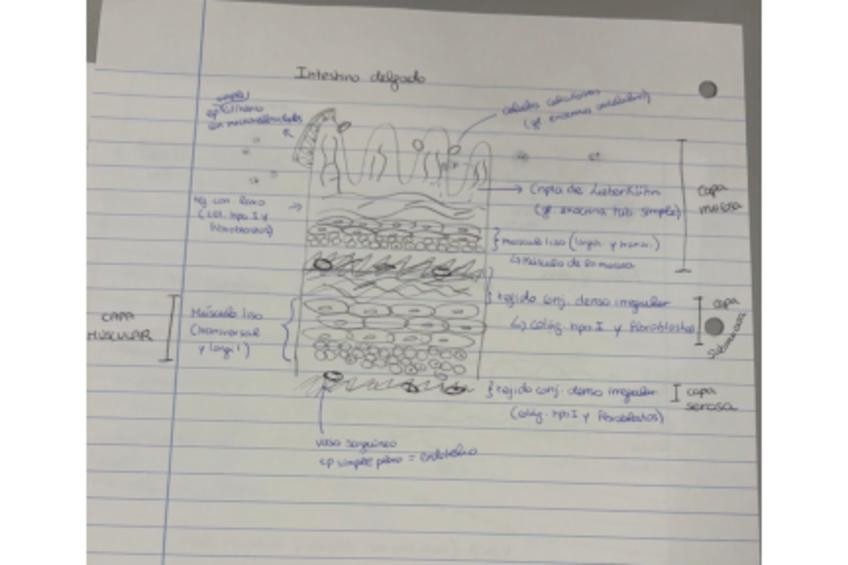 Intestino delgado
simple
ep cilíndrico
con microvellosidades
células caliciformes
(gl. exocrina unicelular)
tej con. laxo
(col. tipo I y
fibroblastos)
Cripta de Lieberkühn
(gl. exocrina tub. simple)
CAPA
mucosa
músculo liso (longit. y transv.)
↳ músculo de la mucosa
tejido conj. denso irregular
↳ colág. tipo I y fibroblastos
capa
submucosa
CAPA
MUSCULAR
Músculo liso
(transversal
y longit)
tejido conj. denso irregular
(colág. tipo I y fibroblastos)
capa
serosa
vaso sanguíneo
ep simple plano = endotelio